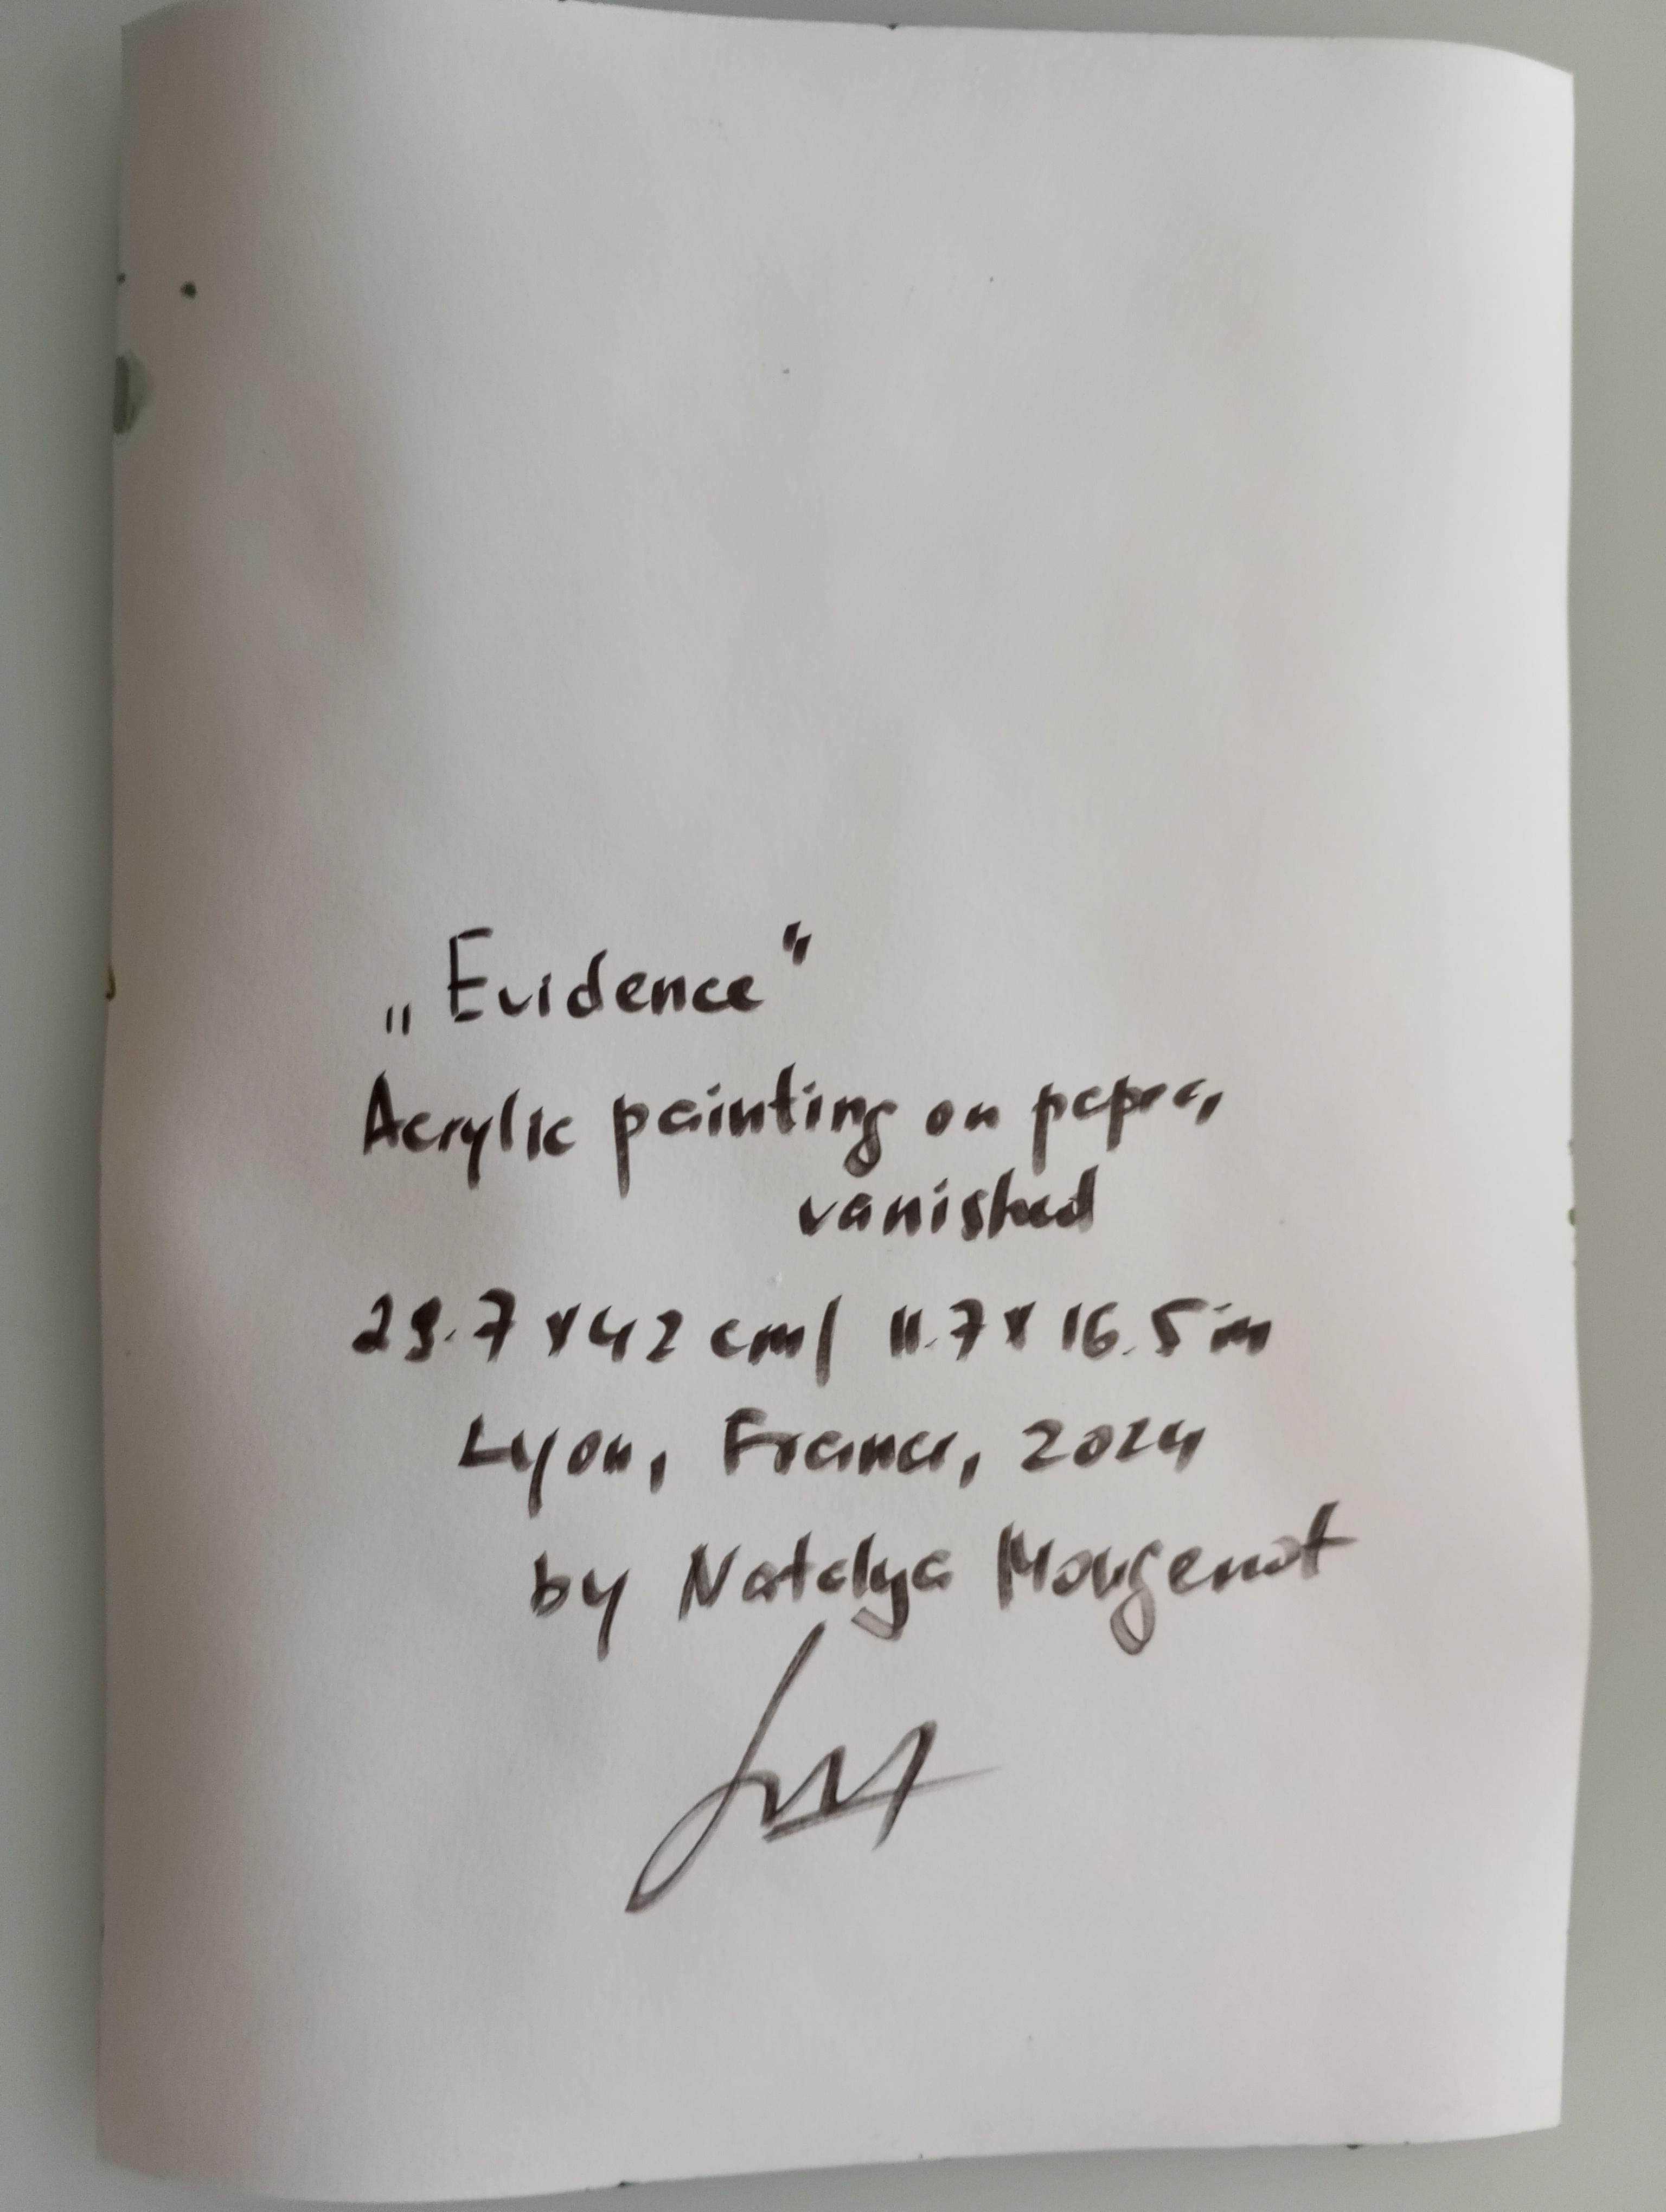 „Evidence“
Acrylic painting on paper,
vanished
29.7 x 42 cm/ 11.7 x 16.5 in
Lyon, France, 2024
by Natalya Mougenot